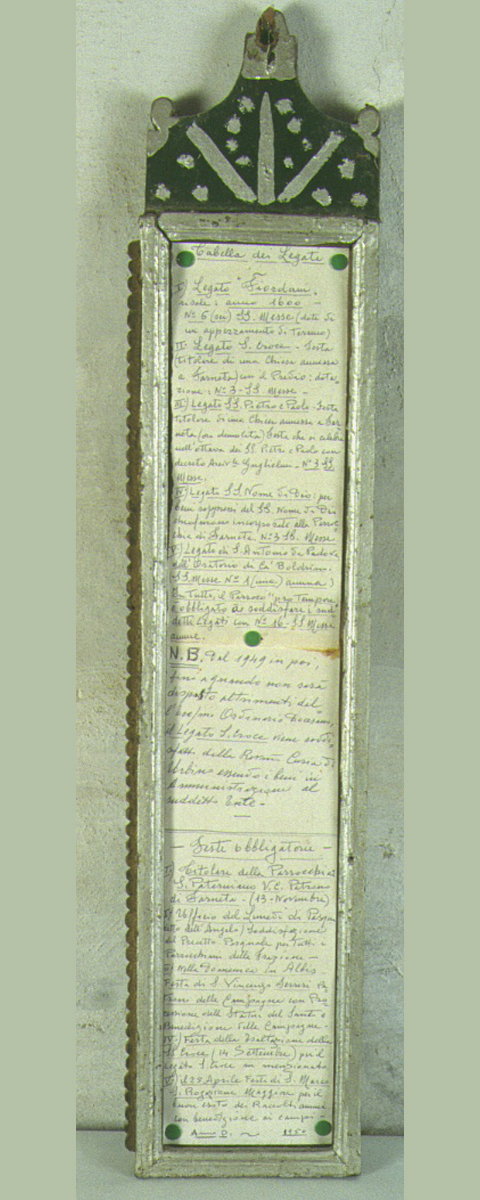 Tabella dei Legati
I) Legato "Giordani"
anno 1600 —
No 6 (sei) SS. Messe (dote di
un appezzamento di Terreno)
II) Legato S. Croce - Festa
titolare di una Chiesa annessa
a Sarneta) con il Predio: dota-
zione: No 3 - SS Messe -
III) Legato SS. Pietro e Paolo. Festa
titolare di una Chiesa annessa a Sar
neta (ora demolita) Festa che si celebra
nell'ottava dei SS Pietro e Paolo con
decreto Guglielmi - No 3 SS
Messe.
IV) Legato SS. Nome di Dio: per
beni soppressi del SS. Nome di Dio
incorporate alla Parroc
chia di Sarneta. No 3 SS. Messe
V) Legato di S. Antonio da Padova
nell'Oratorio di Ca' Boldrino.
SS Messe No 1 (una) annua)
In Tutto, il Parroco "pro Tempore"
è obbligato a soddisfare i sud-
detti Legati con No 16 - SS Messe
annue.
N.B. Dal 1949 in poi,
fino a quando non sarà
disposto altrimenti dal-
l'Ordinario Diocesano,
il Legato S. Croce viene soddi-
sfatto dalla Curia di
Urbino essendo i beni in
Amministrazione al
suddetto Ente -
— Feste obbligatorie —
I) Titolare della Parrocchia
S. Paterniano V. C. Patrono
di Sarneta - (13 - Novembre)
II) Ufficio del Lunedì di Pasqua
detto dell'Angelo) Soddisfazione
del Precetto Pasquale per Tutti i
Parrocchiani della Frazione —
III) Nella Domenica in Albis
Festa di S Vincenzo Ferreri Pa
trono delle Campagne con Pro
cessione della Statua del Santo e
Benedizione delle Campagne -
IV) Festa della Esaltazione della
SS Croce (14 Settembre) per il
Legato S. Croce su menzionato
V) il 25 Aprile Festa di S. Marco
Rogazione Maggiore per il
buon esito dei Raccolti annua
con benedizione ai campi -
Anno D. ~ 1950